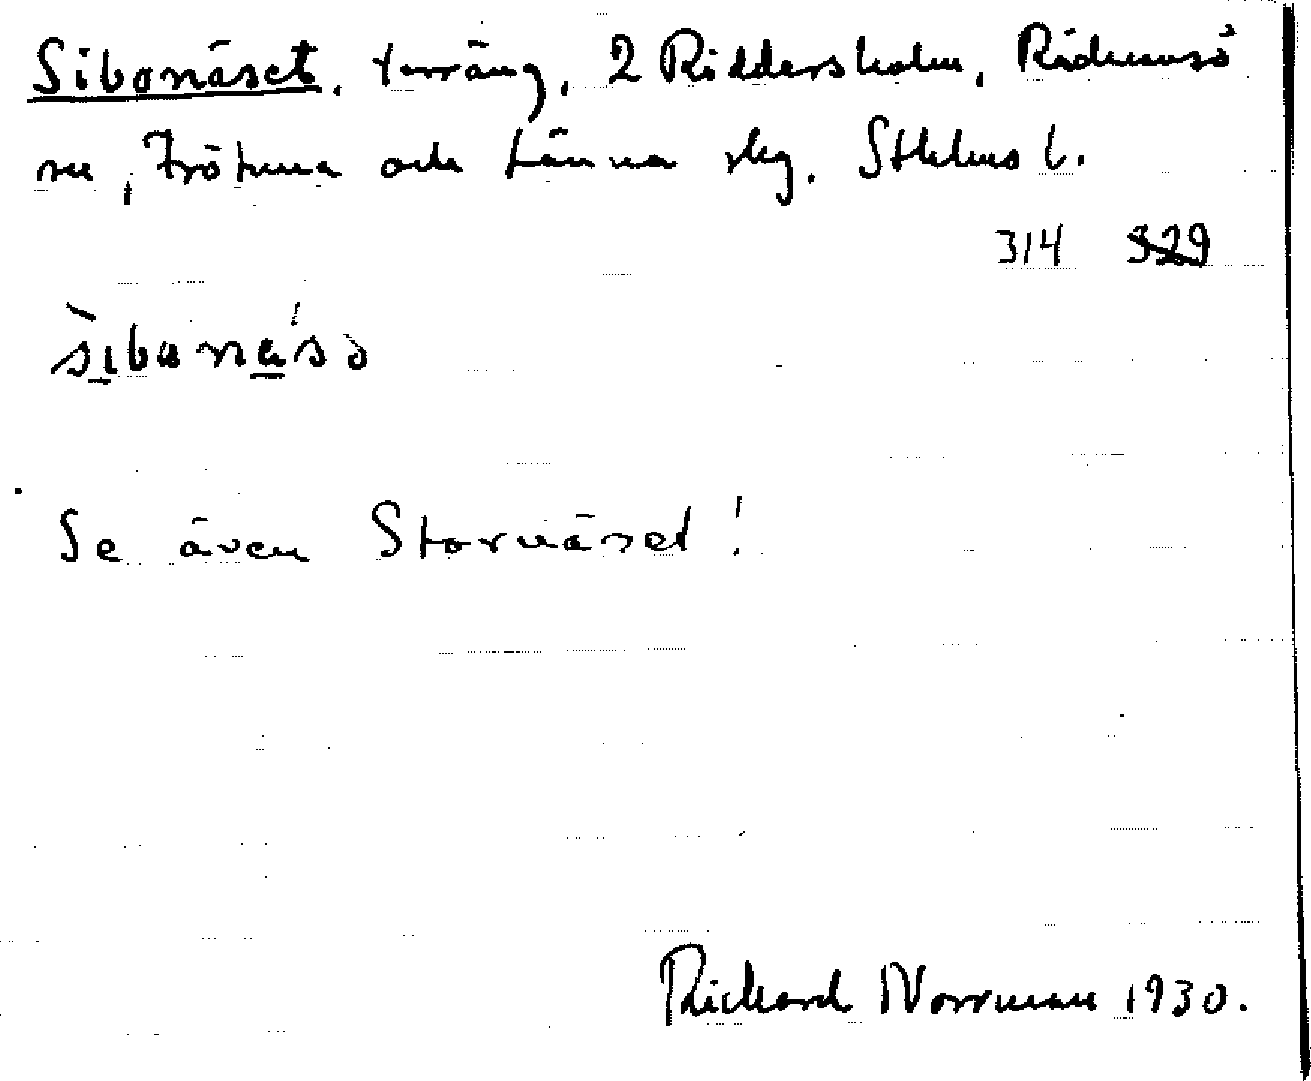 Sibonäset, terräng, 2 Riddersholm, Rådmansö
sn, Frötuna och Länna skg. Sthlms l.
314 329
sibonäsə
Se även Stornäset!
Rickard Norrman 1930.